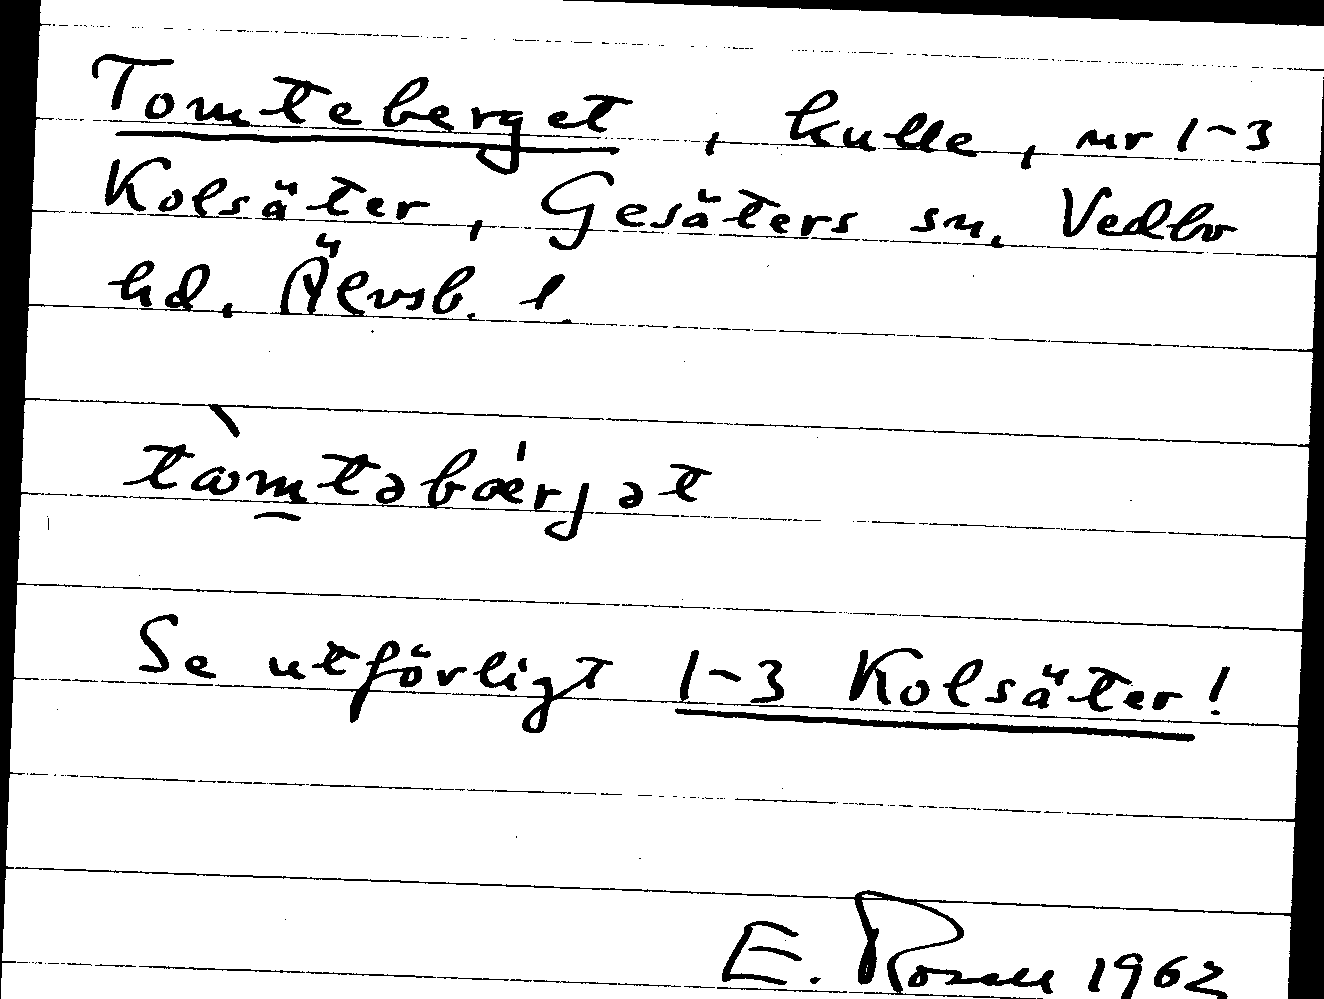 Tomteberget, kulle, nr 1-3
Kolsäter, Gesäters sn. Vedbo
hd. Älvsb. l.
tɷ̀mtəbǽrjət
Se utförligt 1-3 Kolsäter!
E. Rosell 1962